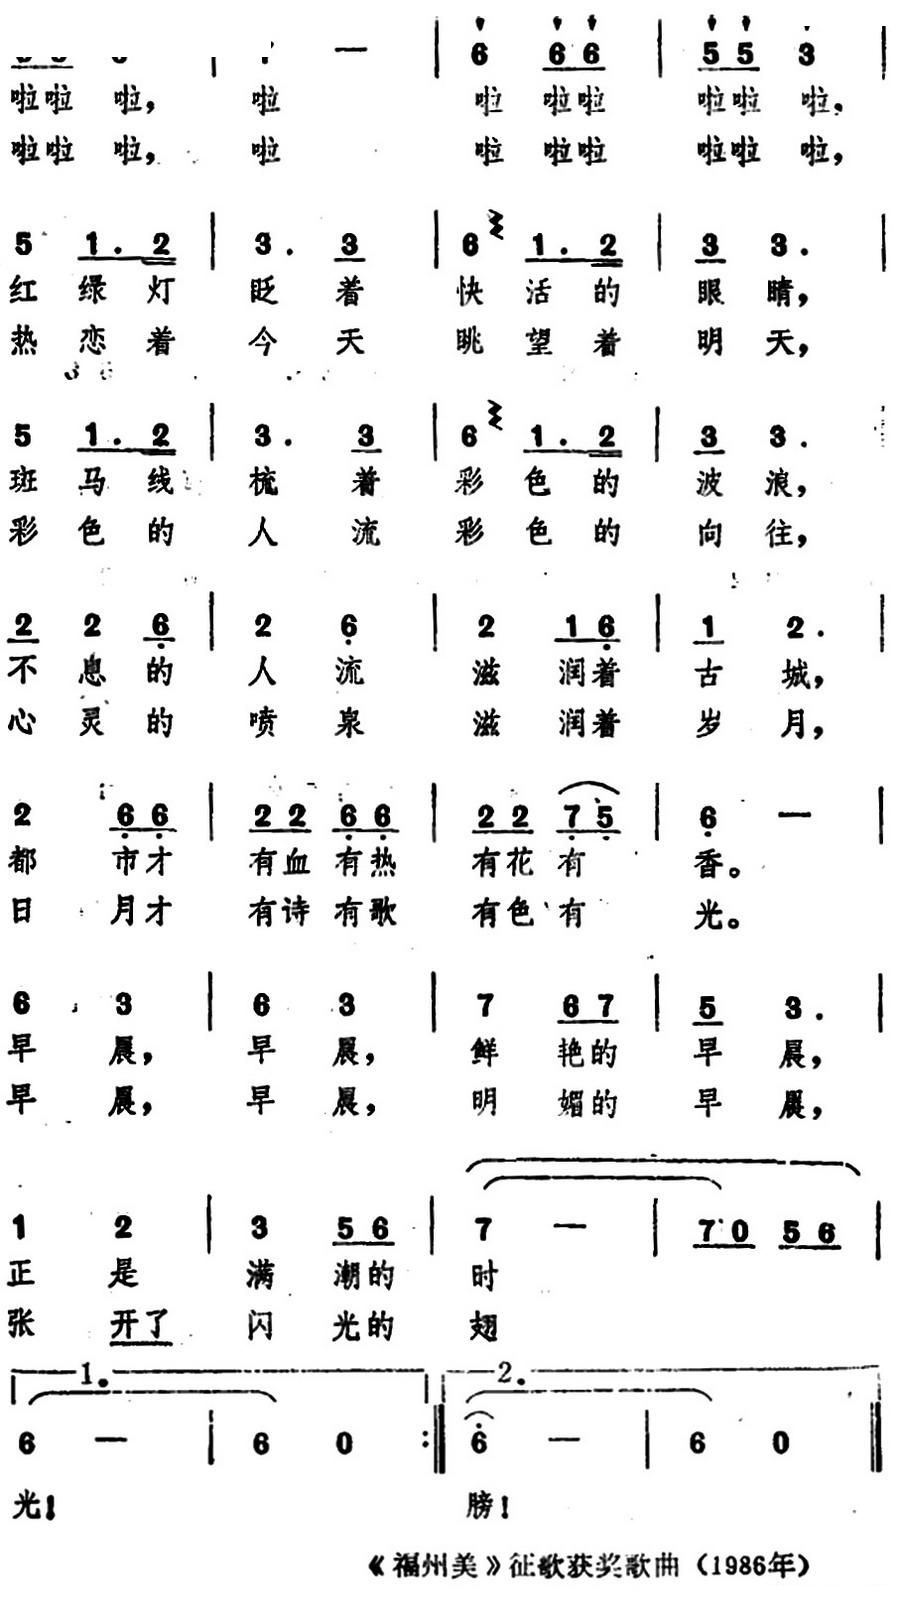 6 6 6 | 5 5 3 |
啦啦 啦， 啦 啦 啦啦 啦啦 啦，
啦啦 啦， 啦 啦 啦啦 啦啦 啦，
5 1. 2 | 3. 3 | 6 1. 2 | 3 3. |
红 绿 灯 眨 着 快 活 的 眼 睛，
热 恋 着 今 天 眺 望 着 明 天，
5 1. 2 | 3. 3 | 6 1. 2 | 3 3. |
斑 马 线 梳 着 彩 色 的 波 浪，
彩 色 的 人 流 彩 色 的 向 往，
2 2 6 | 2 6 | 2 1 6 | 1 2. |
不 息 的 人 流 滋 润着 古 城，
心 灵 的 喷 泉 滋 润着 岁 月，
2 6 6 | 2 2 6 6 | 2 2 7 5 | 6 — |
都 市才 有血 有热 有花 有 香。
日 月才 有诗 有歌 有色 有 光。
6 3 | 6 3 | 7 6 7 | 5 3. |
早 晨， 早 晨， 鲜 艳的 早 晨，
早 晨， 早 晨， 明 媚的 早 晨，
1 2 | 3 5 6 | 7 — | 7 0 5 6 |
正 是 满 潮的 时
张 开了 闪 光的 翅
1. 2.
6 — | 6 0 :‖ 6 — | 6 0 ‖
光！ 膀！
《福州美》征歌获奖歌曲（1986年）